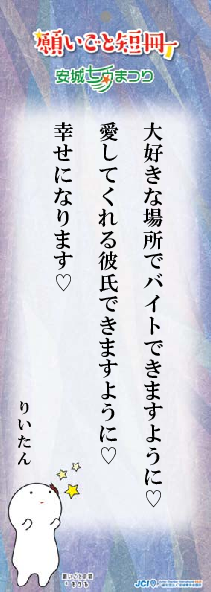 願いごと短冊
安城七夕まつり
大好きな場所でバイトできますように♡
愛してくれる彼氏できますように♡
幸せになります♡
りいたん
JCI